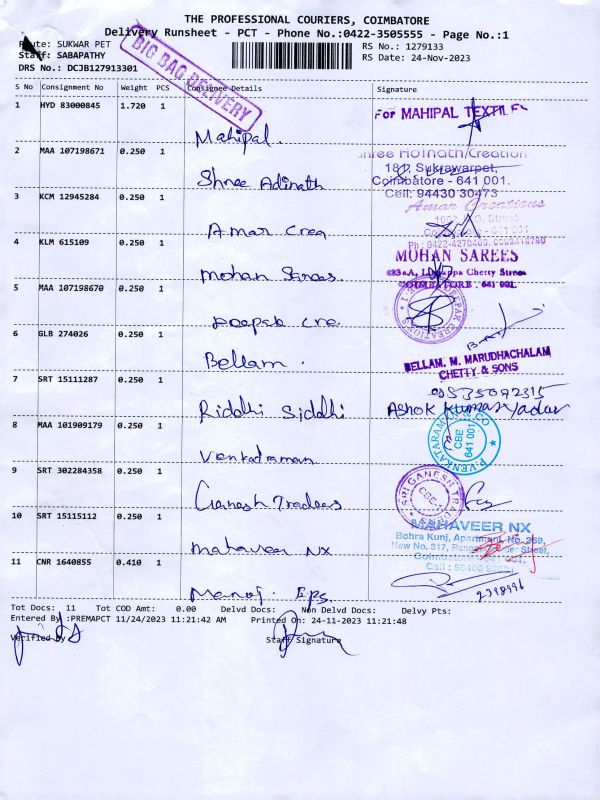 THE PROFESSIONAL COURIERS, COIMBATORE
Delivery Runsheet - PCT - Phone No.:0422-3505555 - Page No.:1
Route: SUKWAR PET
RS No.: 1279133
Staff: SABAPATHY
RS Date: 24-Nov-2023
DRS No.: DCJB127913301
BIG BAG DELIVERY
S No Consignment No Weight PCS Consignee Details Signature
1 HYD 83000845 1.720 1
For MAHIPAL TEXTILES
Mahipal.
2 MAA 107198671 0.250 1
Shree Adinath
181, Sukrawarpet,
Coimbatore - 641 001.
Cell: 94430 30473
3 KCM 12945284 0.250 1
Amar Creations
Amar Crea
4 KLM 615109 0.250 1
MOHAN SAREES
Mohan Sarees
COIMBATORE - 641 001.
5 MAA 107198670 0.250 1
DEEPAK CREATIONS
Deepak Cre.
6 GLB 274026 0.250 1
Bellam.
BELLAM. M. MARUDHACHALAM
CHETTY & SONS
7 SRT 15111287 0.250 1
Riddhi Siddhi
Ashok Kumar Yadav
8 MAA 101909179 0.250 1
P.VENKATARAMAN
CBE
641 001
Venkatraman
9 SRT 302284358 0.250 1
SRI GANESH TRADERS
CBE-1
Ganesh Traders
10 SRT 15115112 0.250 1
MAHAVEER NX
Bohra Kunj, Apartment, No. 269,
New No. 317,
Mahaveer NX
11 CNR 1640855 0.410 1
Manoj. Eps.
Tot Docs: 11 Tot COD Amt: 0.00 Delvd Docs: Non Delvd Docs: Delvy Pts:
Entered By :PREMAPCT 11/24/2023 11:21:42 AM Printed On: 24-11-2023 11:21:48
Verified By Staff Signature